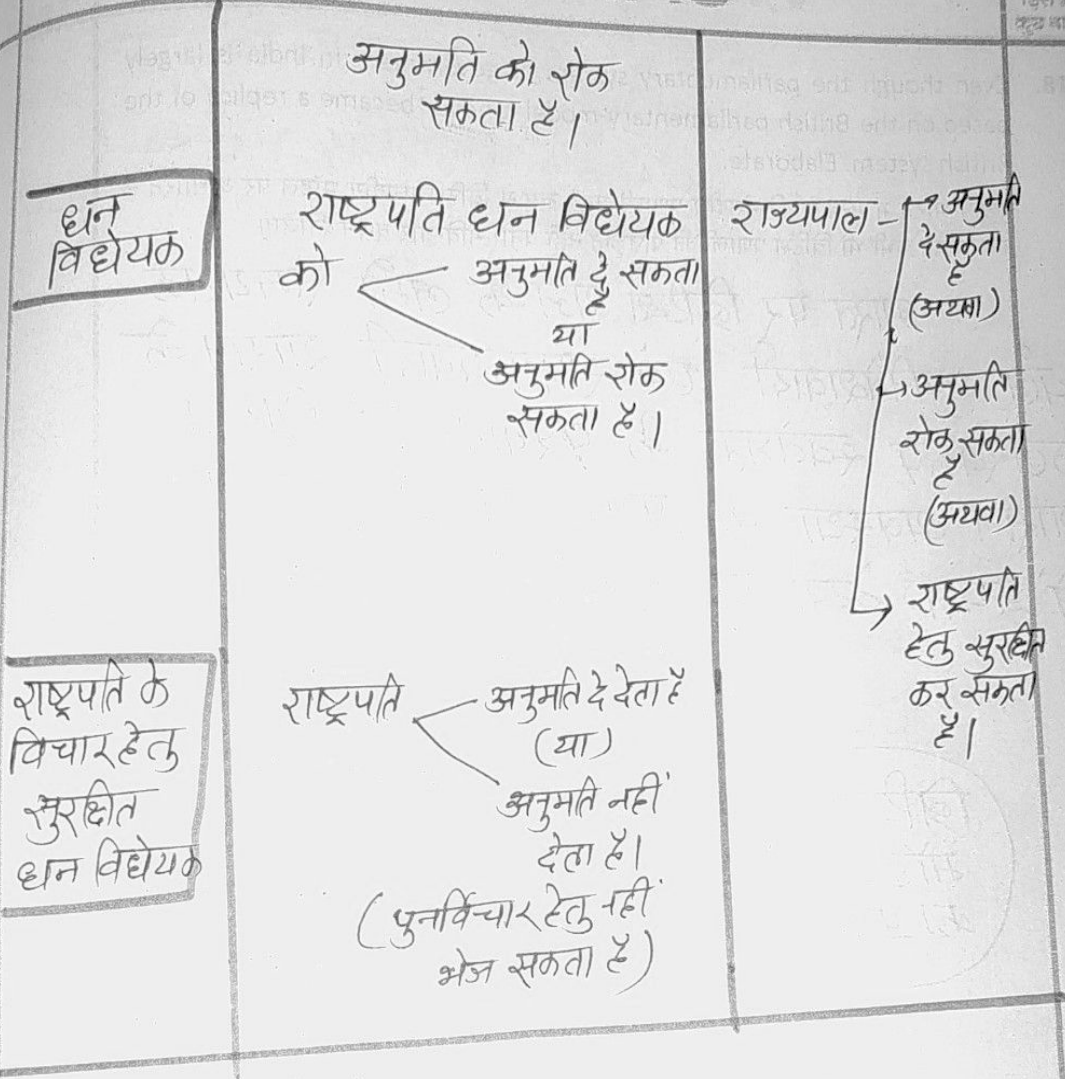 अनुमति को रोक
सकता है।
धन
विधेयक
राष्ट्रपति धन विधेयक
को
अनुमति दे सकता
है
या
अनुमति रोक
सकता है।
राज्यपाल
अनुमति
दे सकता
है
(अथवा)
अनुमति
रोक सकता
है
(अथवा)
राष्ट्रपति
हेतु सुरक्षित
कर सकता
है।
राष्ट्रपति के
विचार हेतु
सुरक्षित
धन विधेयक
राष्ट्रपति
अनुमति दे देता है
(या)
अनुमति नहीं
देता है।
(पुनर्विचार हेतु नहीं
भेज सकता है)